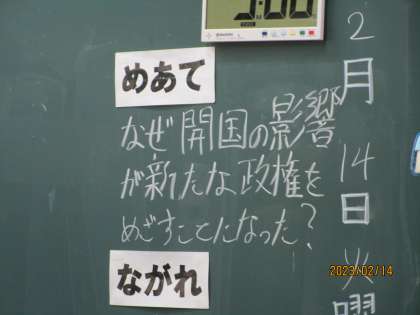 2月14日火曜
めあて
なぜ開国の影響
が新たな政権を
めざすことになった?
ながれ
2023/02/14